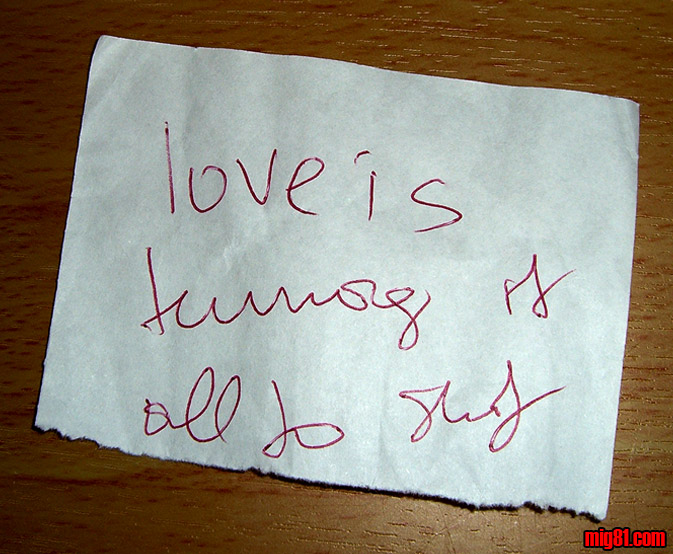 love is
turning it
all to shit
mlg81.com